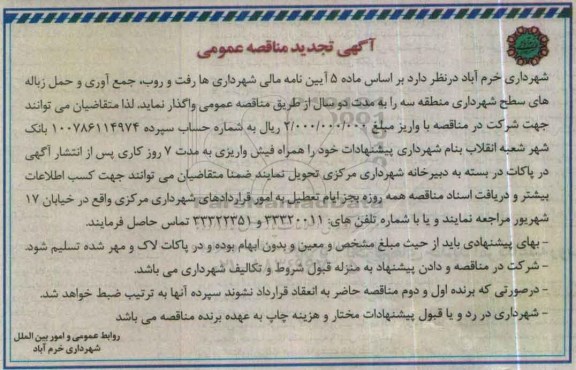 آگهی تجدید مناقصه عمومی
شهرداری خرم آباد درنظر دارد بر اساس ماده ۵ آیین نامه مالی شهرداری ها رفت و روب، جمع آوری و حمل زباله
های سطح شهرداری منطقه سه را به مدت دو سال از طریق مناقصه عمومی واگذار نماید. لذا متقاضیان می توانند
جهت شرکت در مناقصه با واریز مبلغ ۲/۰۰۰/۰۰۰/۰۰۰ ریال به شماره حساب سپرده ۱۰۰۷۸۶۱۱۴۹۷۴ بانک
شهر شعبه انقلاب بنام شهرداری پیشنهادات خود را همراه فیش واریزی به مدت ۷ روز کاری پس از انتشار آگهی
در پاکات در بسته به دبیرخانه شهرداری مرکزی تحویل نمایند ضمنا متقاضیان می توانند جهت کسب اطلاعات
بیشتر و دریافت اسناد مناقصه همه روزه بجز ایام تعطیل به امور قراردادهای شهرداری مرکزی واقع در خیابان ۱۷
شهریور مراجعه نمایند و یا با شماره تلفن های: ۳۳۳۲۰۰۱۱ و ۳۳۳۲۲۳۵۱ تماس حاصل فرمایند.
- بهای پیشنهادی باید از حیث مبلغ مشخص و معین و بدون ابهام بوده و در پاکات لاک و مهر شده تسلیم شود.
- شرکت در مناقصه و دادن پیشنهاد به منزله قبول شروط و تکالیف شهرداری می باشد.
- درصورتی که برنده اول و دوم مناقصه حاضر به انعقاد قرارداد نشوند سپرده آنها به ترتیب ضبط خواهد شد.
- شهرداری در رد و یا قبول پیشنهادات مختار و هزینه چاپ به عهده برنده مناقصه می باشد
روابط عمومی و امور بین الملل
شهرداری خرم آباد